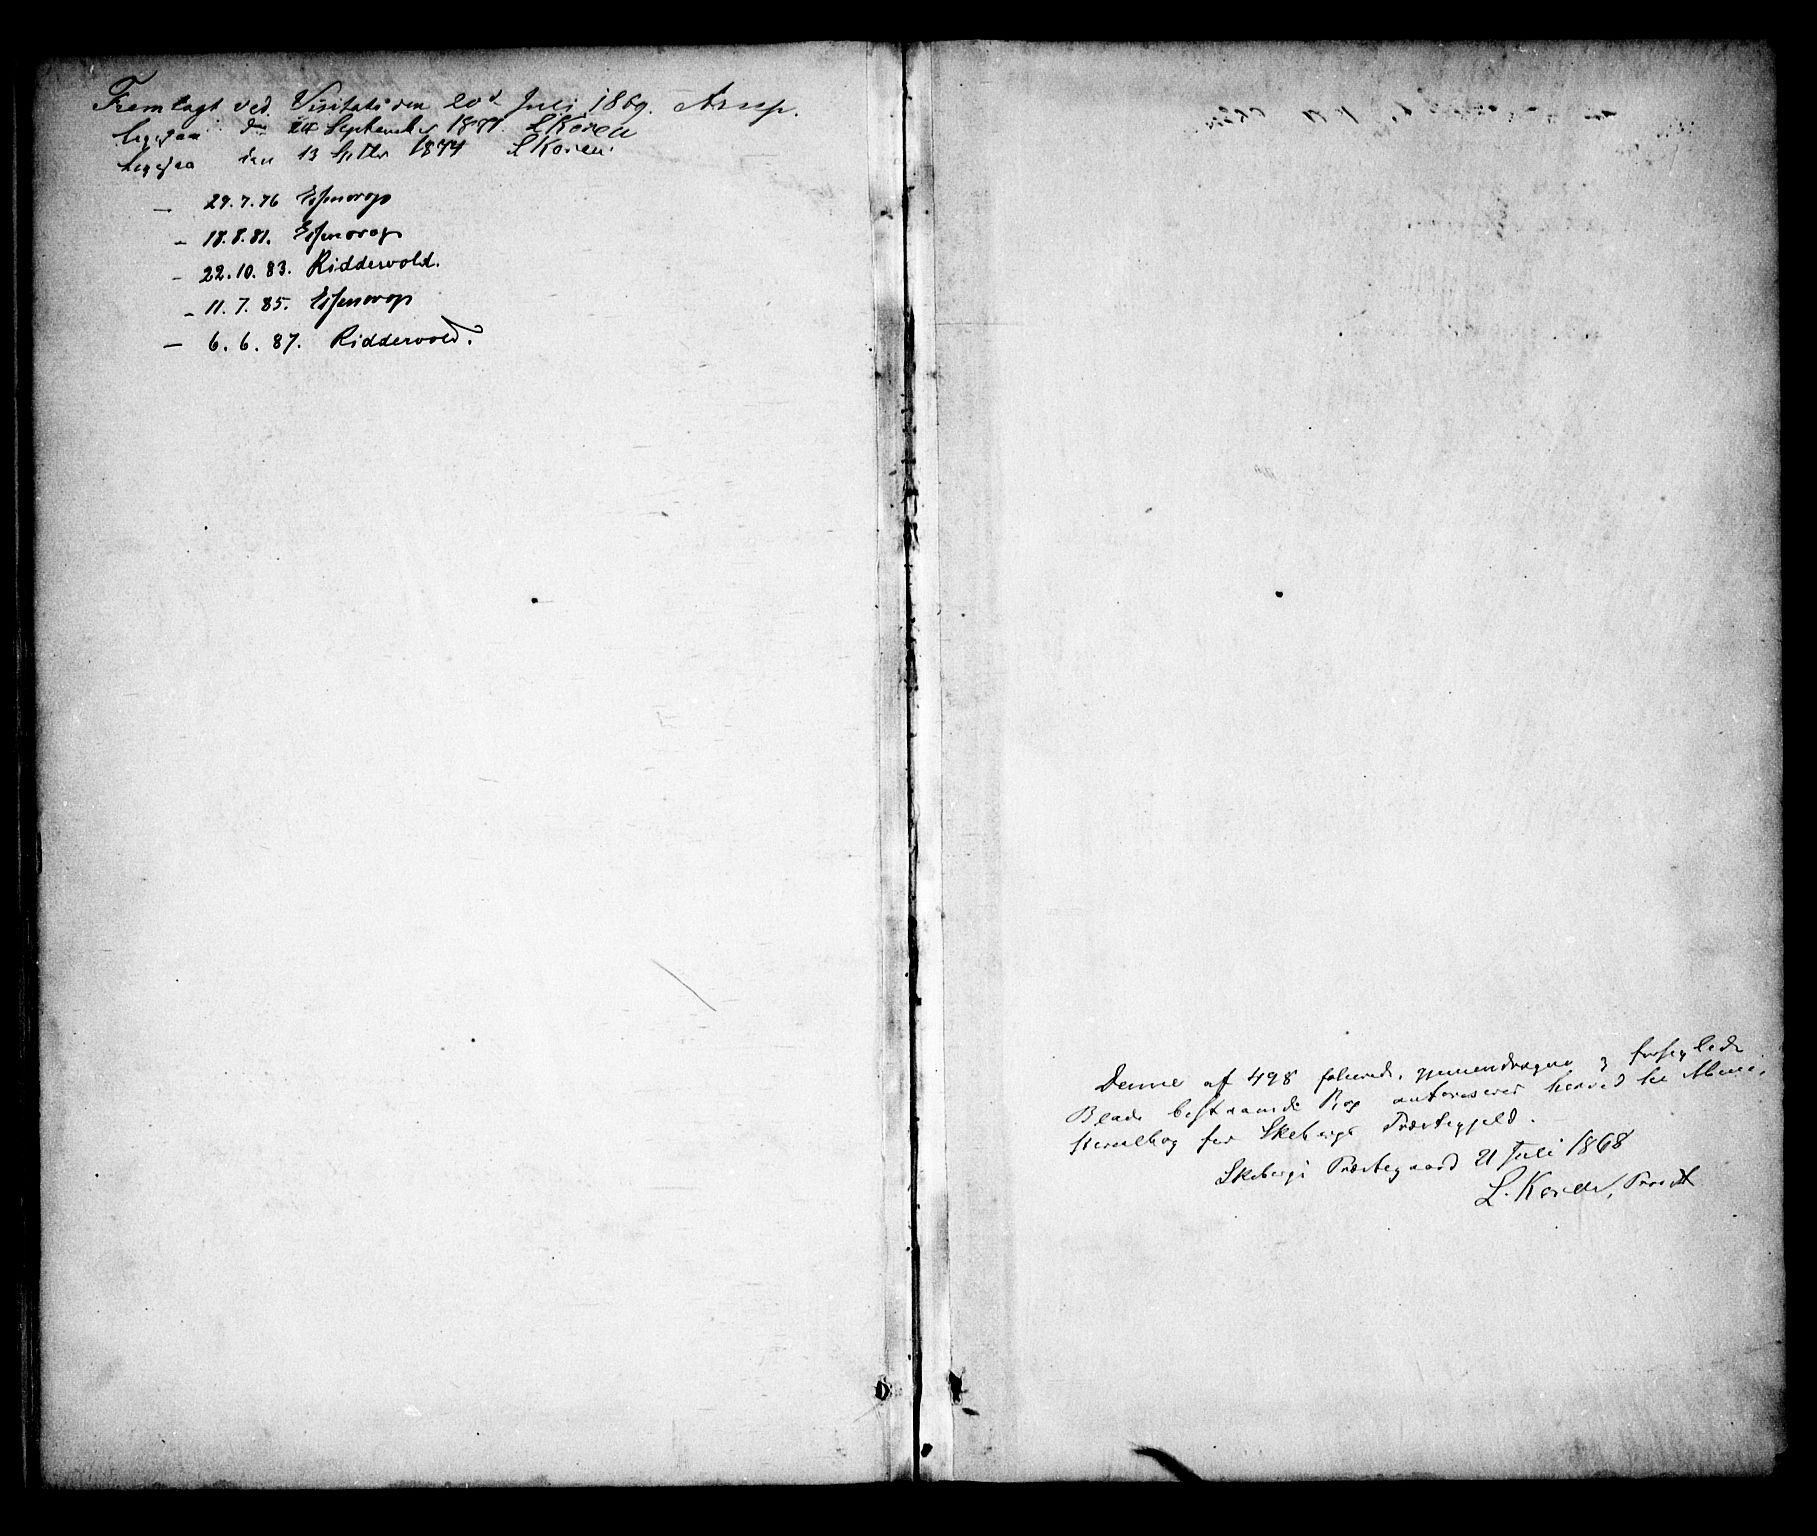 Fremlagt ved Visitatsen 20d Juli 1869. Arup.
ligesaa den September 1871 LKoren
ligesaa den 13 Septbr 1874 LKoren
— 29.7.76 Essendrop
— 18.8.81. Essendrop
— 22.10.83. Riddervold.
— 11.7.85. Essendrop
— 6.6.87. Riddervold.
Denne af 498 folierede, gjennemdragne og forseglede
Blade bestaaende Bog autoriseres herved til Mini-
sterialbog for Skeberge Præstegjeld.
Skeberge Præstegaard 21 Juli 1868
L. Koren, Provst